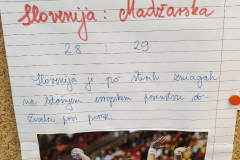 Slovenija : Madžarska
28 : 29
Slovenija je po štirih zmagah
na letošnjem evropskem prvenstvu do-
živela prvi poraz.